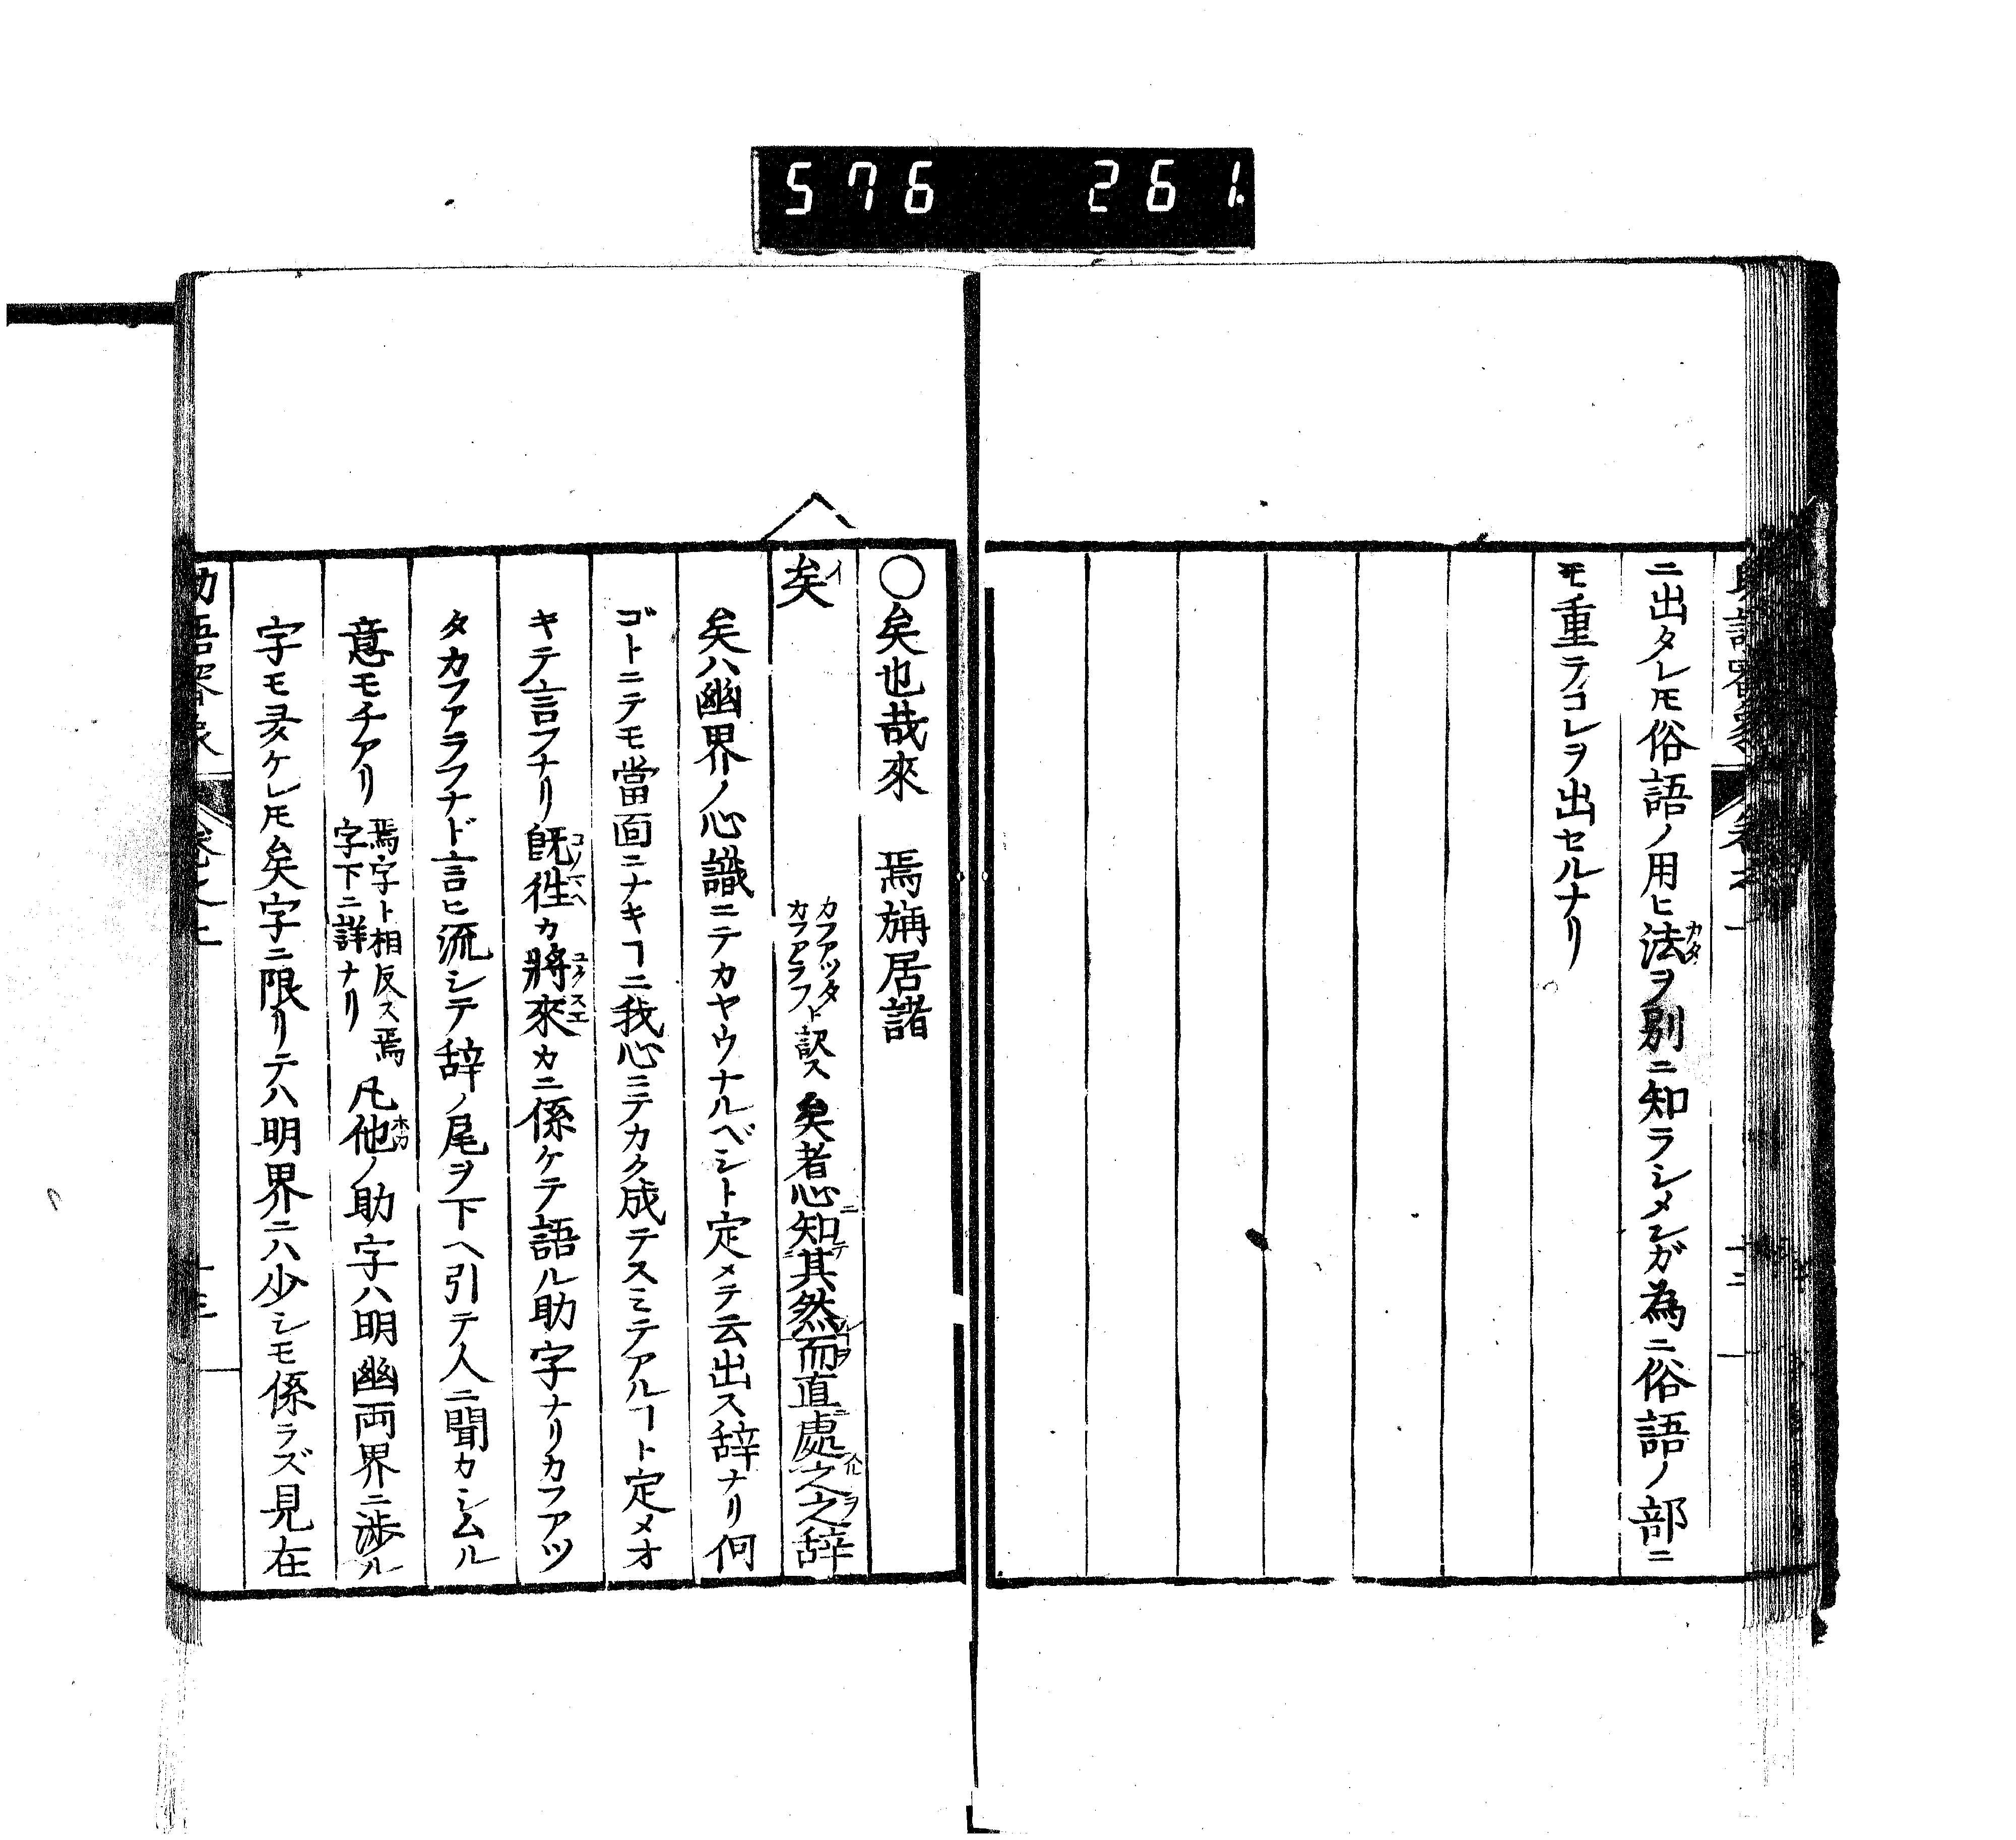 576 261
ニ出タレ𪜈俗語ノ用ヒ法カタヲ別ニ知ラシメンガ為ニ俗語ノ部ニ
モ重テコレヲ出セルナリ
○矣也哉來 焉旃居諸
矣イ カフアツタ カフアラフト訳ス 矣者心ニ知テ其然ルヿヲ而直ニ處スル之ヲ之辞
矣ハ幽界ノ心識ニテカヤウナルベシト定メテ云出ス辞ナリ何
ゴトニテモ當面ニナキヿニ我心ミテカク成テスミテアルヿト定メオ
キテ言フナリ既徃カ將來カニ係ケテ語ル助字ナリカフアツ
タカフアラフナド言ヒ流シテ辞ノ尾ヲ下ヘ引テ人ニ聞カシムル
意モチアリ 焉字ト相反ス焉字下ニ詳ナリ 凡他ホカノ助字ハ明幽両界ニ渉ル
字モ多ケレ𪜈矣字ニ限リテハ明界ニハ少シモ係ラズ見在